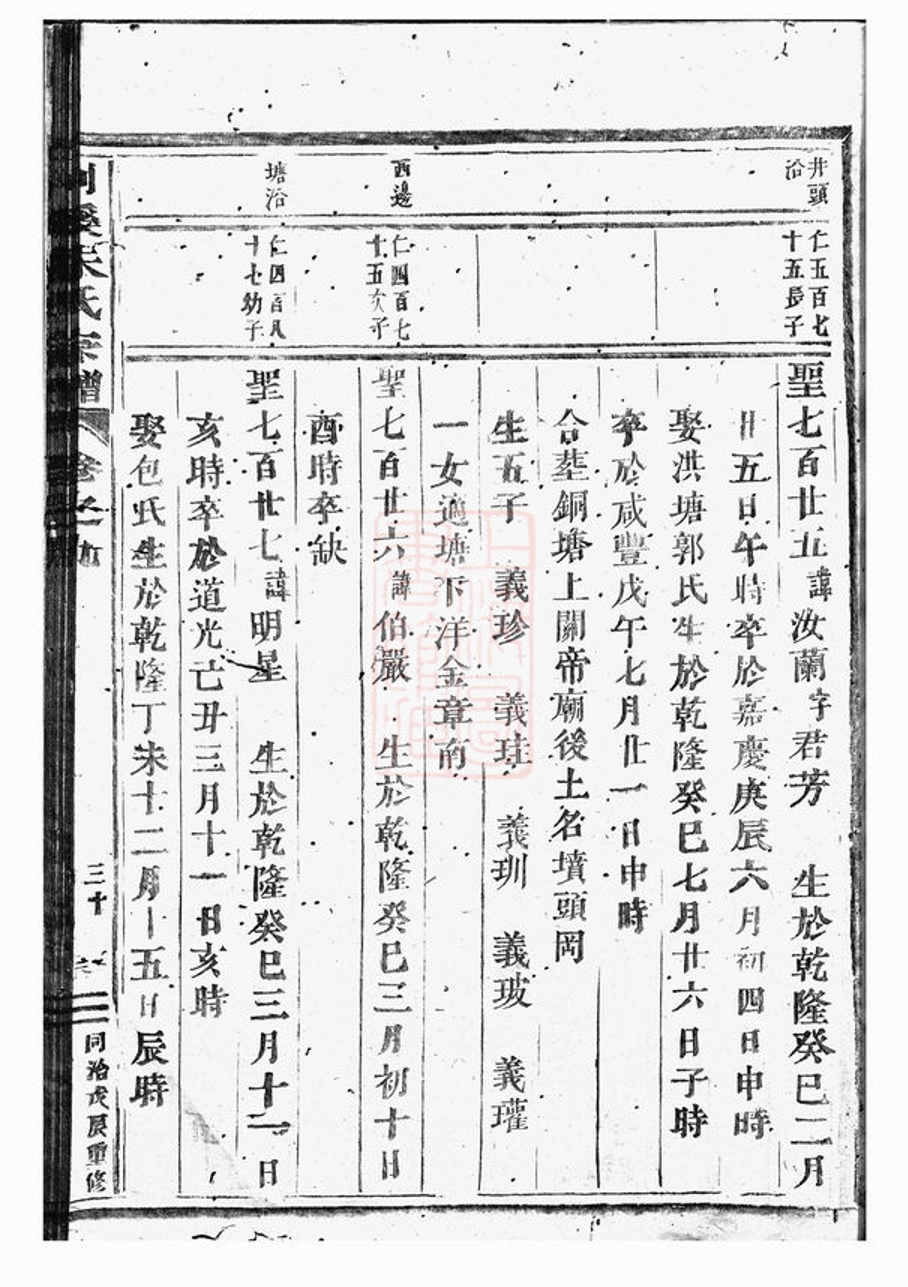 井頭
沿
仁五百七
十五長子
聖七百廿五諱汝蘭字君芳 生於乾隆癸巳二月
廿五日午時卒於嘉慶庚辰六月初四日申時
娶洪塘郭氏生於乾隆癸巳七月廿六日子時
卒於咸豐戊午七月廿一日申時
合塟銅塘上關帝廟後土名墳頭岡
生五子 義珍 義珪 義玔 義玻 義瓘
一女適塘下洋金章南
西邊
仁四百七
十五次子
聖七百廿六諱伯嚴 生於乾隆癸巳三月初十日
酉時卒缺
塘沿
仁四百八
十七幼子
聖七百廿七諱明星 生於乾隆癸巳三月十二日
亥時卒於道光己丑三月十一日亥時
娶包氏生於乾隆丁未十二月十五日辰時
溪朱氏宗譜
卷之
三十
同治戊辰重修